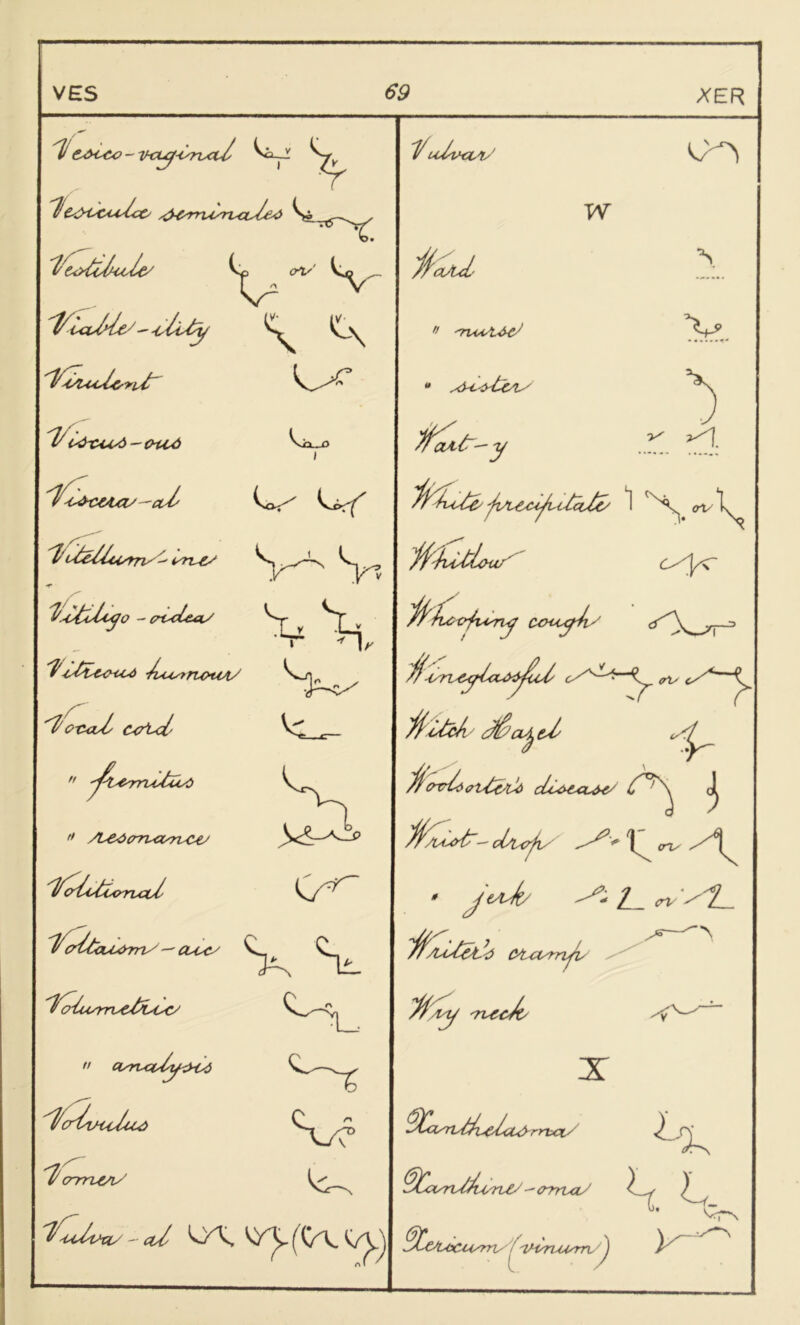 VES 69 XER
Vesico-vaginal
Vesiculae seminales
Vestibule or
Viable-ility
Virulent
Viscus-ous
Viscera-al
Vitellum-ine
Vitiligo-oidea
Vitreous humour
Vocal cord
" fremitus
" resonance
Volitional
Voltaism-aic
Volumetric
" analysis
Volvulus
Vomer
Vulva-al
Vulvar
W
Ward
" nurse
" sister
Wart-y
White precipitate or
Whitlow
Whooping cough
Wineglassful or
Witch Hazel
Woolsorters disease
Wrist-drop or
" jerk or
Writer's cramp
Wry neck
X
Xanthelasma
Xanthine-oma
Xericum (vinum)